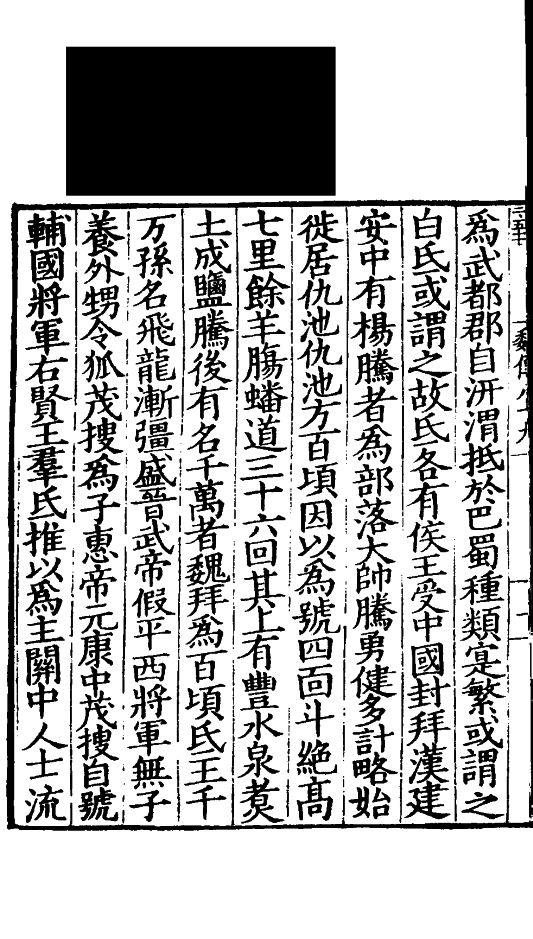 爲武都郡自汧渭抵於巴蜀種類寔繁或謂之
白氐或謂之故氐各有侯王受中國封拜漢建
安中有楊騰者爲部落大帥騰勇健多計略始
徙居仇池仇池方百頃因以爲號四面斗絶高
七里餘羊膓蟠道三十六回其上有豐水泉煑
土成鹽騰後有名千萬者魏拜爲百頃氐王千
万孫名飛龍漸彊盛晉武帝假平西將軍無子
養外甥令狐茂搜爲子惠帝元康中茂搜自號
輔國將軍右賢王羣氐推以爲主關中人士流